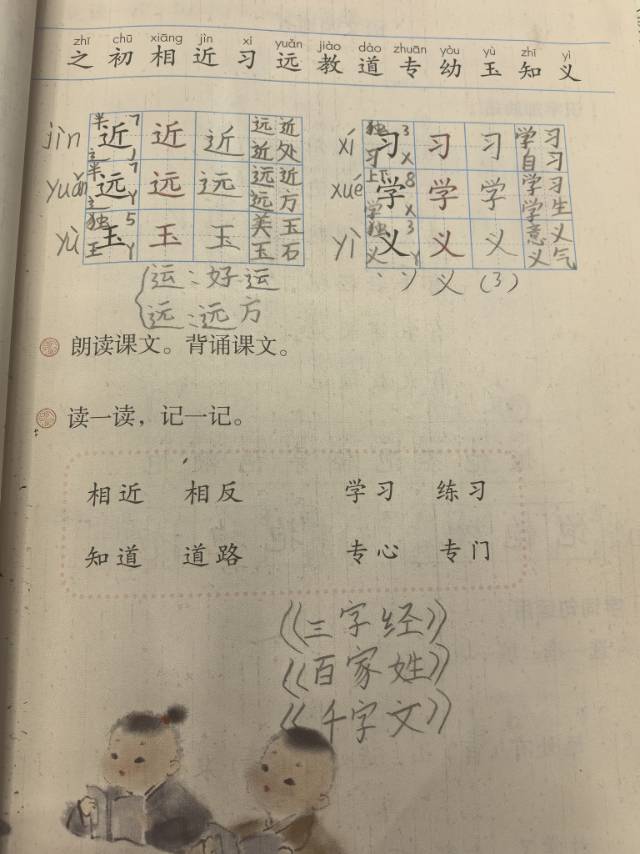 zhī chū xiāng jìn xí yuǎn jiào dào zhuān yòu yù zhī yì
之 初 相 近 习 远 教 道 专 幼 玉 知 义
jìn 半 近 7 近 近 远近 近处
yuǎn 半 远 7 Y 远 远 远近 远方
yù 独 玉 玉 5 Y 玉 玉 美玉 玉石
xí 独 习 习 3 X 习 习 学习 自习
xué 上下 学 学 8 X 学 学 学习 学生
yì 独 义 义 3 Y 义 义 意义 义气
运:好运
远:远方
丶 丷 义 (3)
朗读课文。背诵课文。
读一读,记一记。
相近 相反 学习 练习
知道 道路 专心 专门
《三字经》
《百家姓》
《千字文》